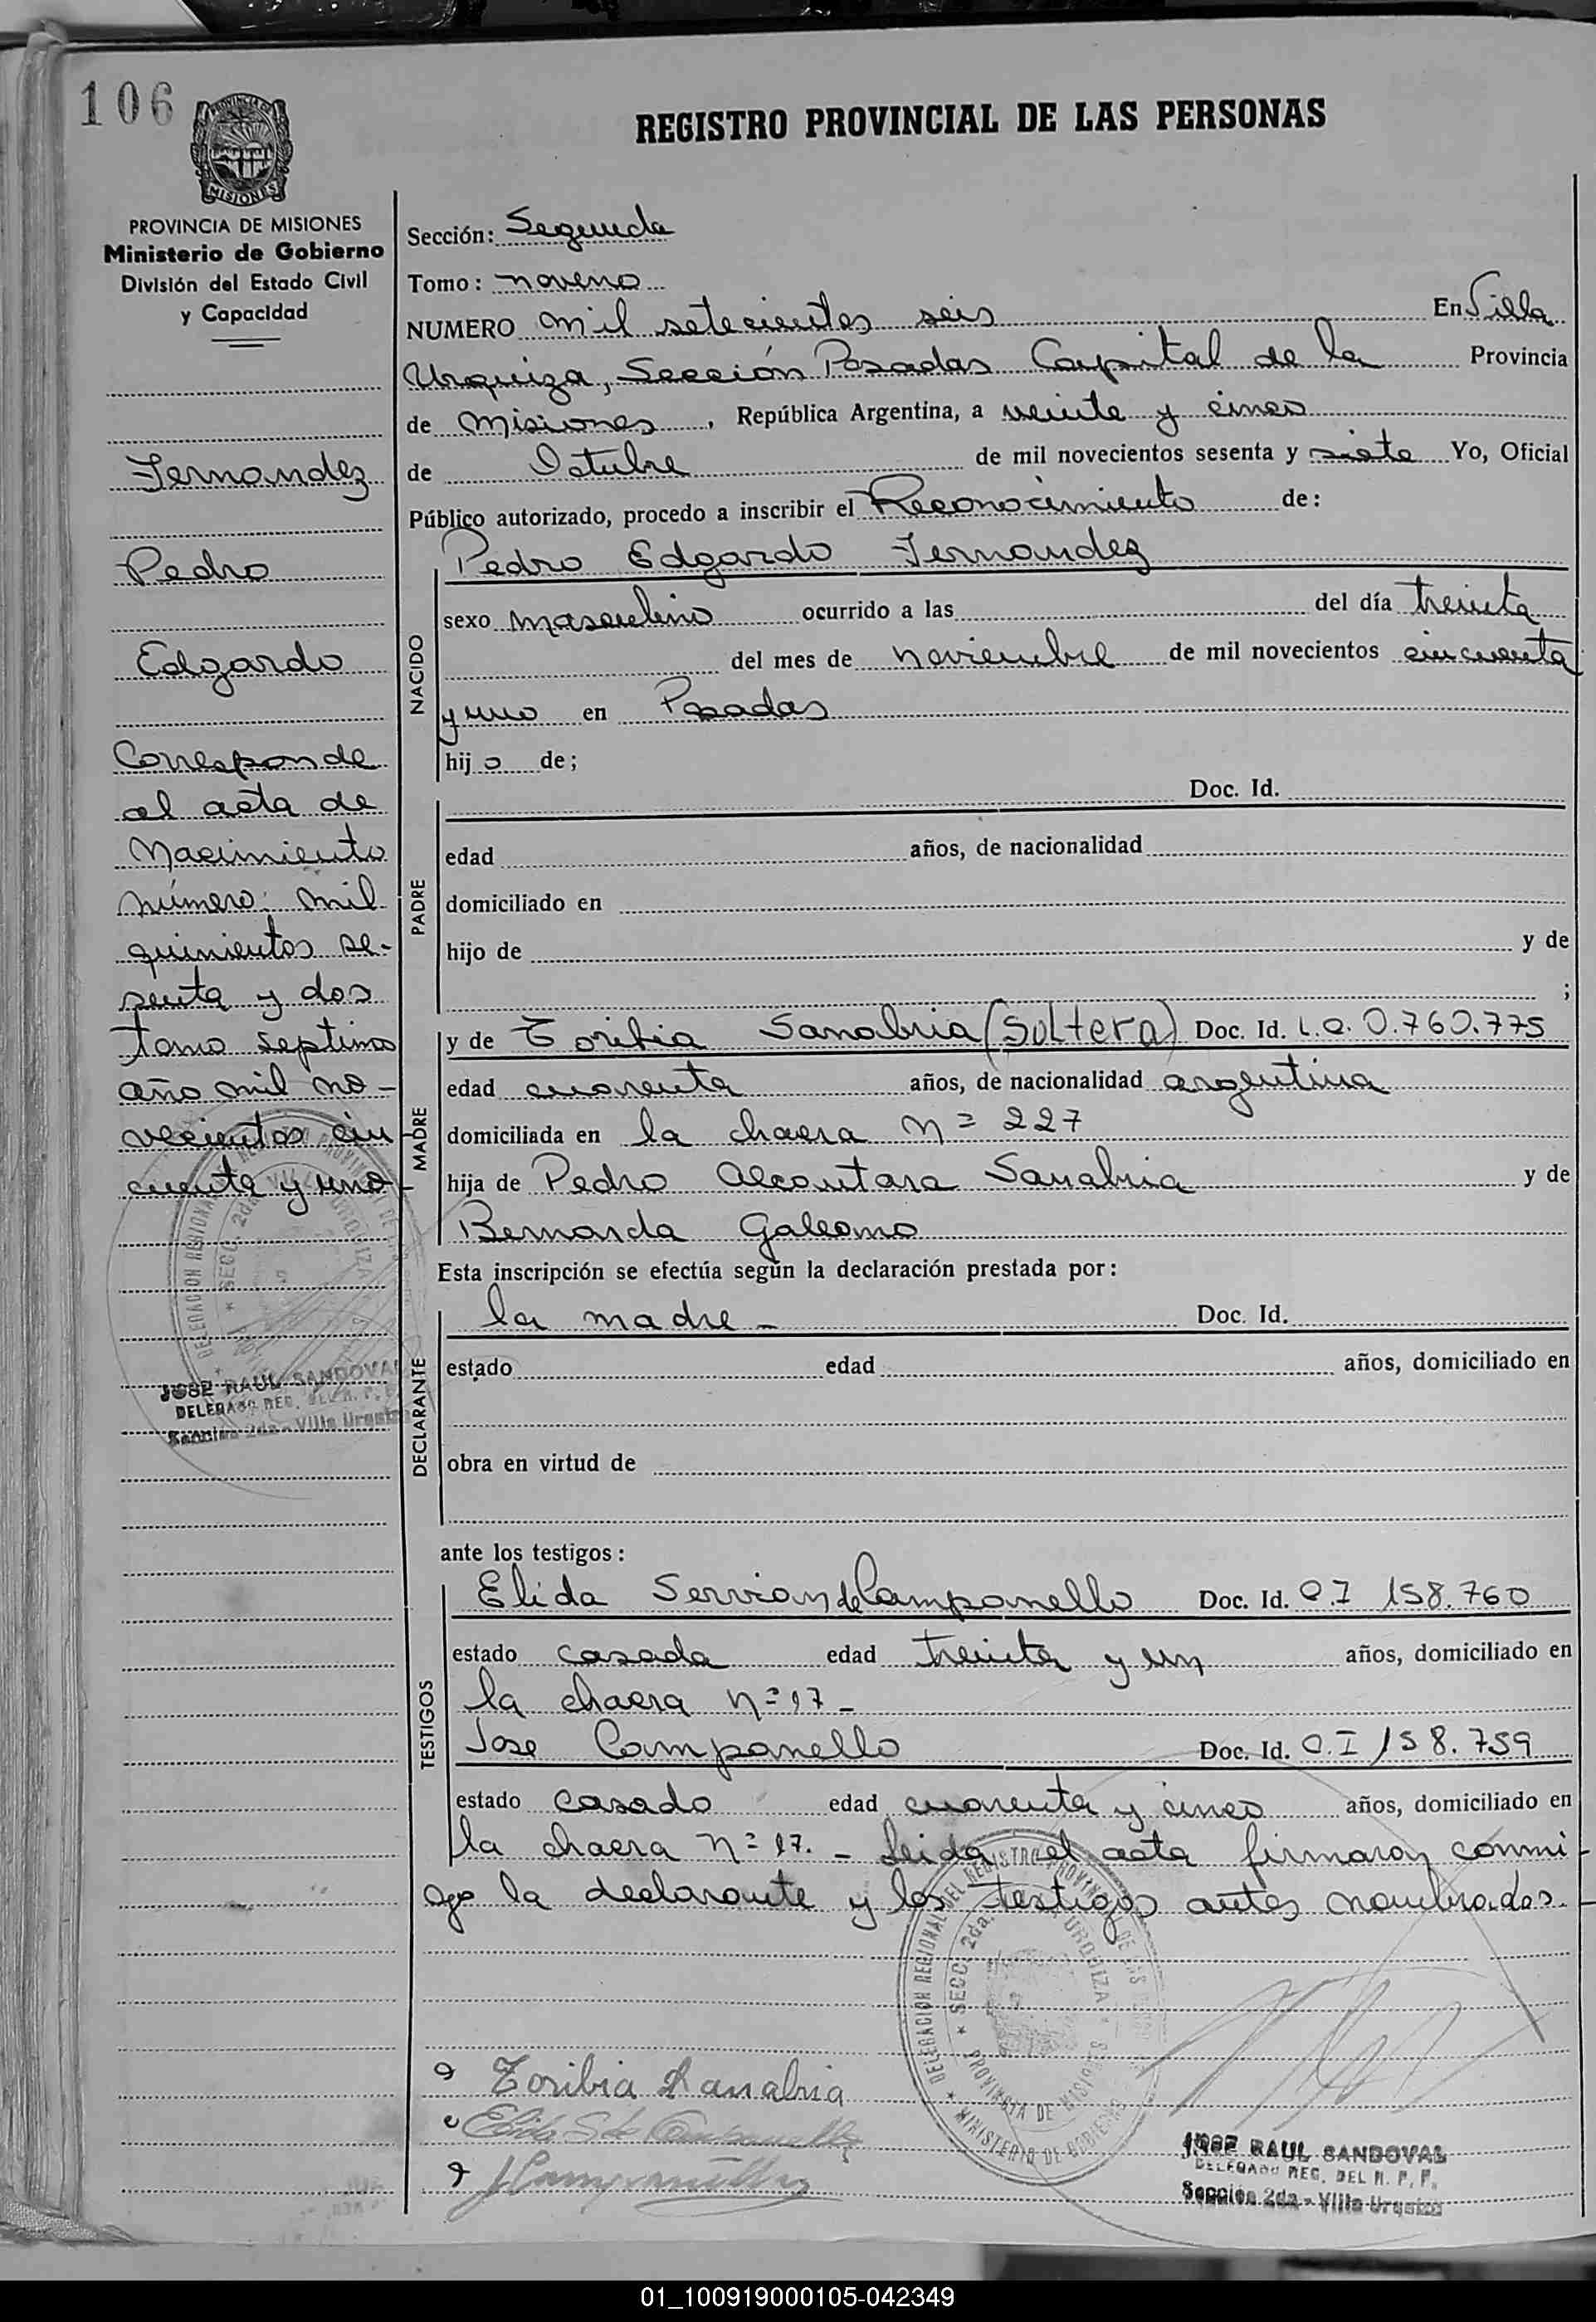 106
PROVINCIA DE
MISIONES
REGISTRO PROVINCIAL DE LAS PERSONAS
PROVINCIA DE MISIONES
Ministerio de Gobierno
División del Estado Civil
y Capacidad
Fernandez
Pedro
Edgardo
Corresponde
al acta de
Nacimiento
número: mil
quinientos se-
senta y dos
tomo septimo
año mil no-
vecientos cin
cuenta y uno
JOSE RAUL SANDOVAL
DELEGADO REG. DEL R. P. P.
Sección 2da - Villa Urquiza
Sección: Segunda
Tomo: noveno
NUMERO mil setecientos seis En Villa
Urquiza, Sección Posadas Capital de la Provincia
de Misiones, República Argentina, a veinte y cinco
de Octubre de mil novecientos sesenta y siete Yo, Oficial
Público autorizado, procedo a inscribir el Reconocimiento de:
NACIDO
Pedro Edgardo Fernandez
sexo masculino ocurrido a las del día treinta
del mes de noviembre de mil novecientos cincuenta
y uno en Posadas
hijo de;
PADRE
Doc. Id.
edad años, de nacionalidad
domiciliado en
hijo de y de
;
MADRE
y de Toribia Sanabria (Soltera) Doc. Id. L.C. 0.760.775
edad cuarenta años, de nacionalidad argentina
domiciliada en la chacra nº 227
hija de Pedro Alcantara Sanabria y de
Bernarda Galeano
Esta inscripción se efectúa según la declaración prestada por:
DECLARANTE
la madre - Doc. Id.
estado edad años, domiciliado en
obra en virtud de
ante los testigos:
TESTIGOS
Elida Servian de Campanello Doc. Id. C.I 158.760
estado casada edad treinta y un años, domiciliado en
la chacra nº 17 -
Jose Campanello Doc. Id. C.I 158.759
estado casado edad cuarenta y cinco años, domiciliado en
la chacra nº 17. - Leida el acta firmaron conmi-
go la declarante y los testigos antes nombrados.-
DELEGACION REGIONAL DEL REGISTRO PROVINCIAL DE LAS PERSONAS
* SECC. 2da. URQUIZA *
PROVINCIA DE MISIONES
* MINISTERIO DE GOBIERNO
Toribia Sanabria
Elida S de Campanello
J Campanello
JOSE RAUL SANDOVAL
DELEGADO REG. DEL R. P. P.
Sección 2da - Villa Urquiza
01_100919000105-042349